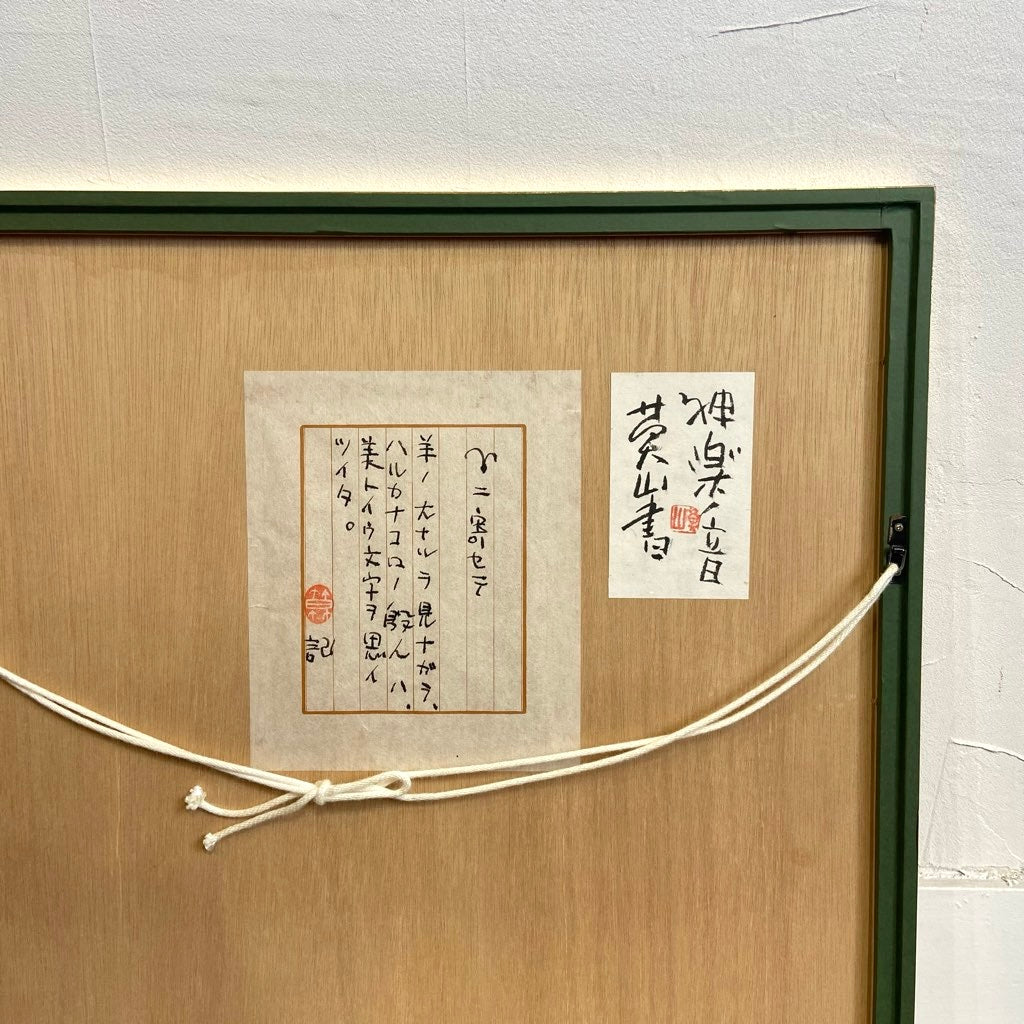 神楽ノ音
山書
ニ寄セテ
羊ノ大ナルヲ見ナガラ、
ハルカナコロノ殷人ハ、
美トイウ文字ヲ思イ
ツイタ。
記